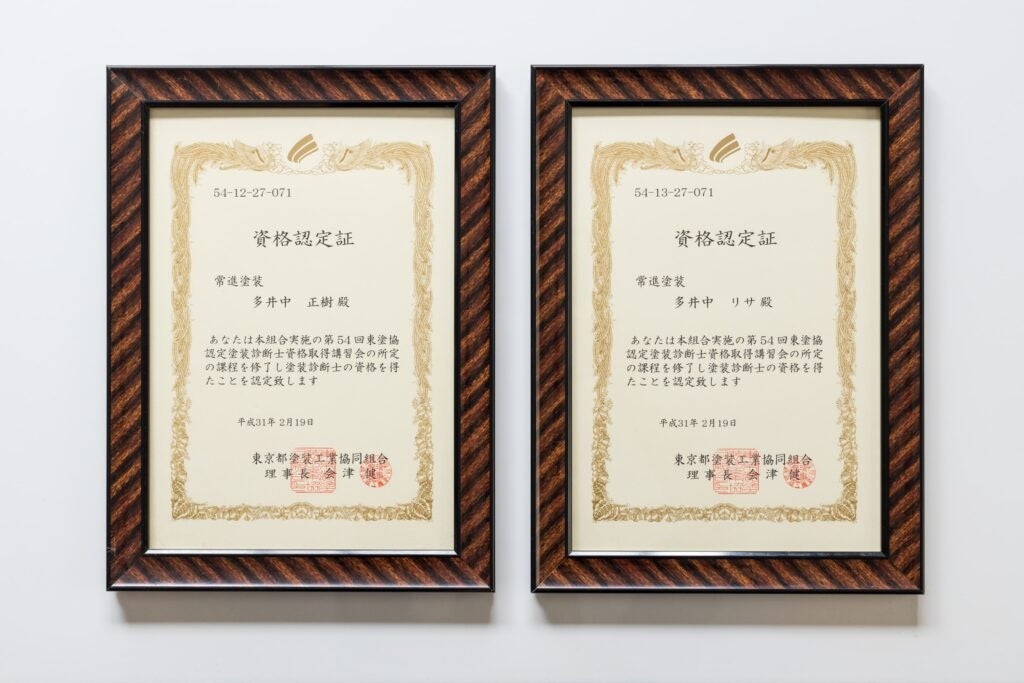 54-12-27-071
資格認定証
常進塗装
多井中 正樹 殿
あなたは本組合実施の第54回東塗協
認定塗装診断士資格取得講習会の所定
の課程を修了し塗装診断士の資格を得
たことを認定致します
平成31年 2月19日
東京都塗装工業協同組合
理事長 会津 健
54-13-27-071
資格認定証
常進塗装
多井中 リサ 殿
あなたは本組合実施の第54回東塗協
認定塗装診断士資格取得講習会の所定
の課程を修了し塗装診断士の資格を得
たことを認定致します
平成31年 2月19日
東京都塗装工業協同組合
理事長 会津 健